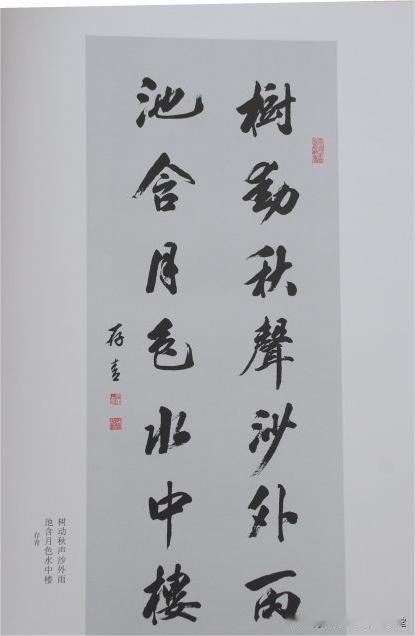 樹動秋聲沙外雨
池含月色水中樓
存青
树动秋声沙外雨
池含月色水中楼
存青